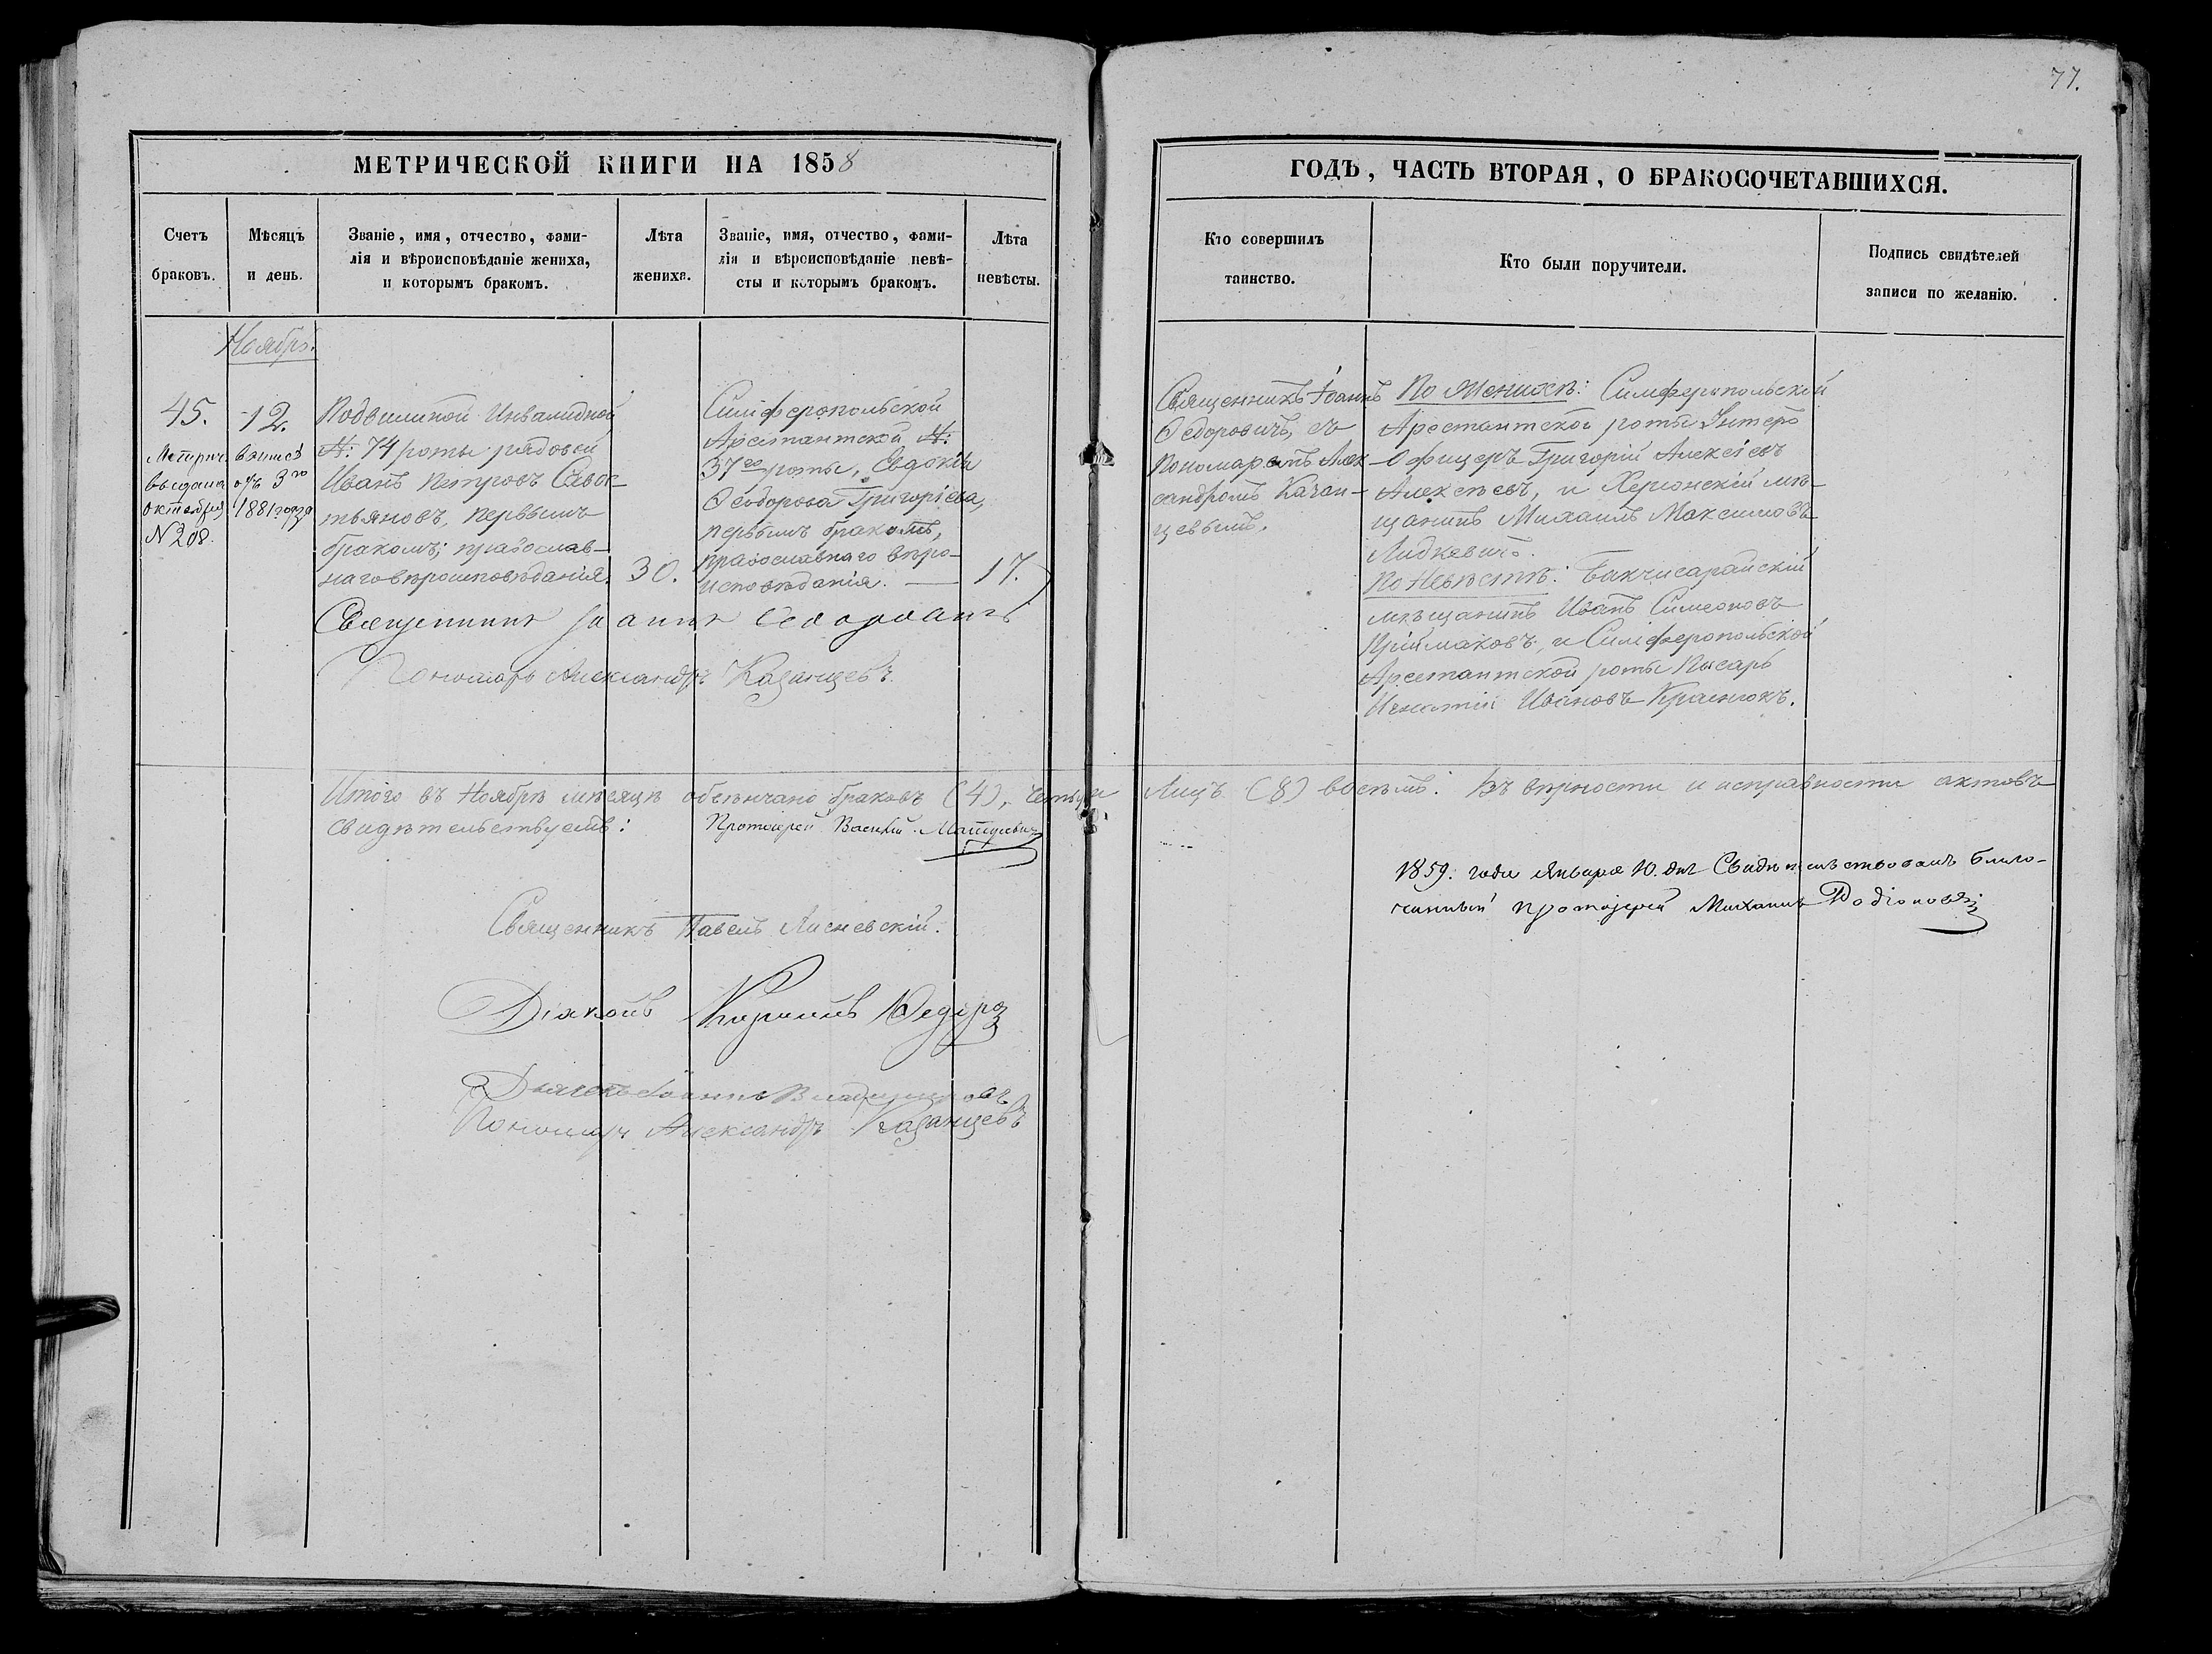 77.
МЕТРИЧЕСКОЙ КНИГИ НА 1858
ГОДЪ, ЧАСТЬ ВТОРАЯ, О БРАКОСОЧЕТАВШИХСЯ.
Счетъ
браковъ.
Мѣсяцъ
и день.
Званіе, имя, отчество, фами-
лія и вѣроисповѣданіе жениха,
и которымъ бракомъ.
Лѣта
жениха.
Званіе, имя, отчество, фами-
лія и вѣроисповѣданіе невѣ-
сты и которымъ бракомъ.
Лѣта
невѣсты.
Кто совершилъ
таинство.
Кто были поручители.
Подпись свидѣтелей
записи по желанію.
Ноябрь.
45.
Метрич.
выдана
октября
N 208.
12.
отъ 3го
1881 года
Подвижной Инвалидной
N: 74 роты рядовой
Иванъ Петровъ Савос-
тьяновъ, первымъ
бракомъ; православ-
наго вѣроисповѣданія.
30.
Симферопольской
Арестантской N:
37го роты, Евдокія
Ѳеодорова Григоріева,
первымъ бракомъ,
православнаго вѣро-
исповѣданія. —
17.
Священникъ Іоаннъ Ѳедоровичъ
Пономарь Александръ Казанцевъ.
Священникъ Іоаннъ
Ѳедоровичъ, съ
Пономаремъ Алек-
сандромъ Казан-
цевымъ.
По Женихѣ: Симферопольской
Арестантской роты Унтеръ
Офицеръ Григорій Алексѣевъ
Алексѣевъ, и Херсонскій мѣ-
щанинъ Михаилъ Максимовъ
По Невѣстѣ: Бакчисарайскій
мѣщанинъ Иванъ Симеоновъ
Приймаковъ, и Симферопольской
Арестантской роты Писарь
Игнатій Ивановъ Краснюкъ.
Итого въ Ноябрѣ мѣсяцѣ обвѣнчано браковъ (4), четыре Лицъ (8) восемь. Въ вѣрности и исправности актовъ
свидѣтельствуемъ: Протоіерей Василій
Священникъ Павелъ Лисневскій.
Діаконъ Кириллъ
Дьячекъ Іоаннъ Владиміровъ
Пономарь Александръ Казанцевъ
1859. года Января 10. дня Свидѣтельствовалъ Благо-
чинный Протоіерей Михаилъ Родіоновъ